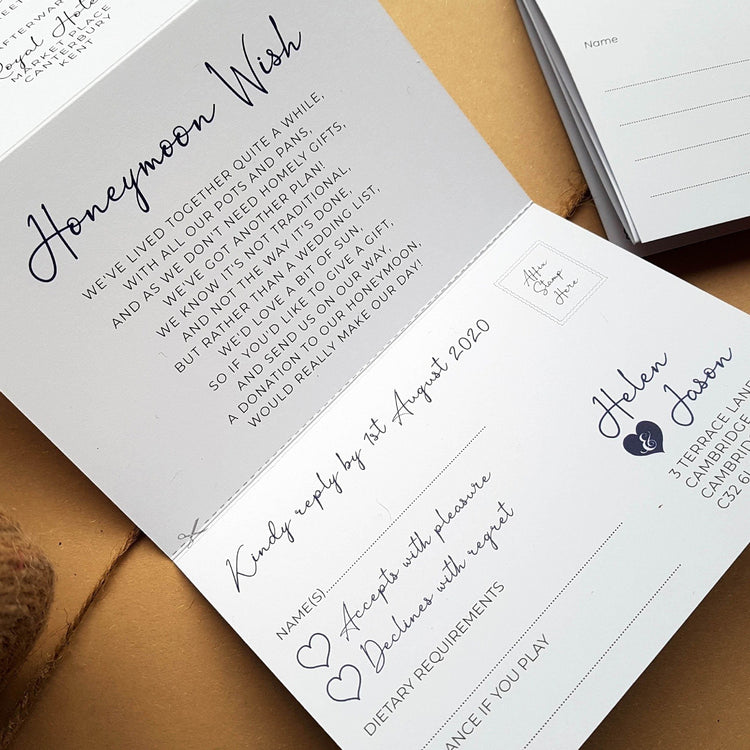 AFTERWAR
Royal Hote
MARKET PLACE
CANTERBURY
KENT
Honeymoon Wish
WE'VE LIVED TOGETHER QUITE A WHILE,
WITH ALL OUR POTS AND PANS,
AND AS WE DON'T NEED HOMELY GIFTS,
WE'VE GOT ANOTHER PLAN!
WE KNOW IT'S NOT TRADITIONAL,
AND NOT THE WAY IT'S DONE,
BUT RATHER THAN A WEDDING LIST,
WE'D LOVE A BIT OF SUN,
SO IF YOU'D LIKE TO GIVE A GIFT,
AND SEND US ON OUR WAY,
A DONATION TO OUR HONEYMOON,
WOULD REALLY MAKE OUR DAY!
Kindly reply by 1st August 2020
NAME(S)
Accepts with pleasure
Declines with regret
DIETARY REQUIREMENTS
ANCE IF YOU PLAY
Stamp
Here
Helen
&
Jason
3 TERRACE LANE
CAMBRIDGE
CAMBRID
C32 6U
Name